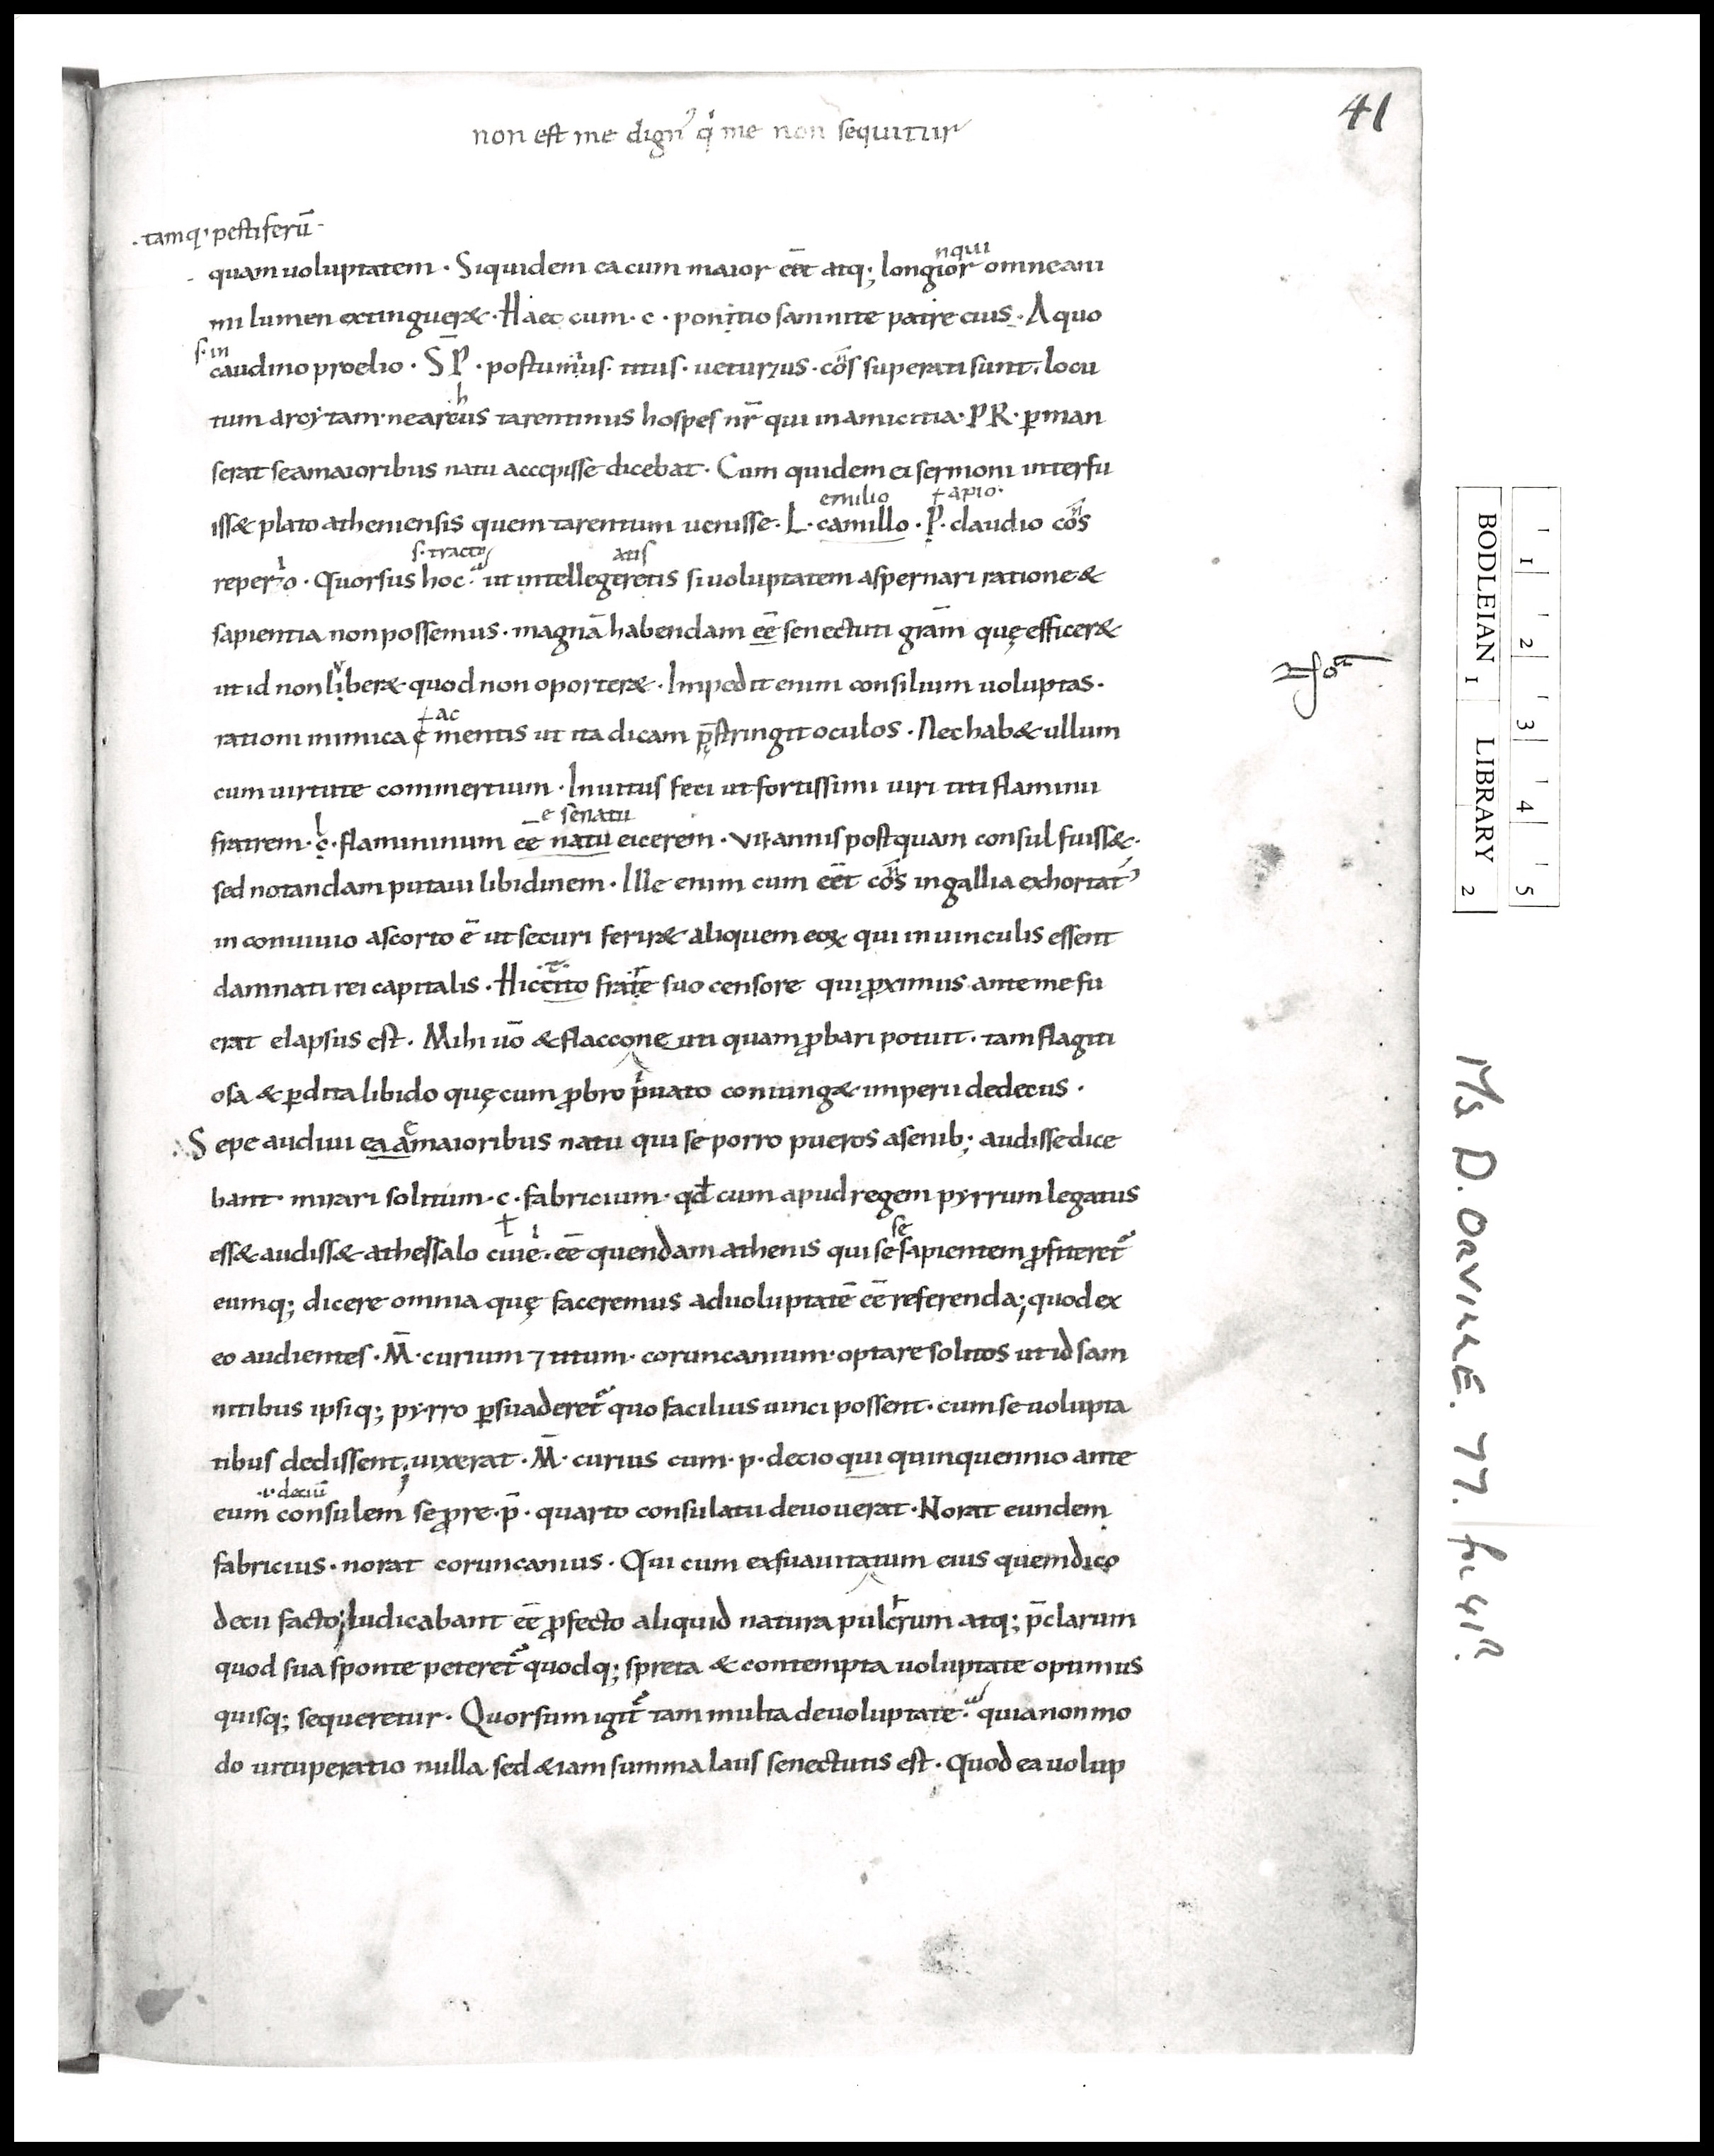 41
non est me dign᾿ q̇ me non sequitur
·tamq; pestiferū·
nqui
quam uoluptatem · Siquidem ea cum maior eēt atq; longior omne ani
mi lumen extinguer& · Haec cum · c · pontio samnite patre eius · A quo
s· in
caudino proelio · S̄ P · postumius · titus · ueturius · cōs superati sunt · locu
h
tum arcytam · nearcus tarentinus hospes nr̄ qui in amicitia · PR · ꝑman
serat se a maioribus natu accepisse dicebat · Cum quidem ei sermoni interfu
emilio ł apio·
iss& plato atheniensis quem tarentum uenisse · L · camillo · P · claudio cōs
s· tracto atis
reperio · Quorsus hoc · ut intellegeretis si uoluptatem aspernari ratione &
sapientia non possemus · magnā habendam eē senectuti grām quę efficer&
ut id non liber& quod non oporter& · Impedit enim consilium uoluptas ·
ł ac
rationi inimica ē mentis ut ita dicam p̄stringit oculos · Nec hab& ullum
cum uirtute commertium · Inuitus feci ut fortissimi uiri titi flaminii
e senatu
fratrem · c · flamininum eē natu eicerem · VII · annis postquam consul fuiss& ·
sed notandam putaui libidinem · Ille enim cum eēt cōs in gallia exhortat᾿
in conuiuio a scorto ē ut securi ferir& aliquem eoꝝ qui in uinculis essent
·t̄·
damnati rei capitalis · Hic tito fratre suo censore qui ꝓximus ante me fu
erat elapsus est · Mihi uō & flacco ne uti quam ꝓbari potuit · tam flagiti
osa & ꝑdita libido quę cum ꝓbro priuato coniung& imperii dedecus ·
Sepe audiui ea a maioribus natu qui se porro pueros a senib; audisse dice
bant · mirari solitum · c · fabricium · qđ cum apud regem pyrrum legatus
ł se
ess& audiss& a thessalo ciuē · eē quendam athenis qui se sapientem ꝓfiteret᾿
eumq; dicere omnia quę faceremus ad uoluptatē eē referenda; quod ex
eo audientes · M̄ · curium ⁊ titum · coruncanium · optare solitos ut id sam
nitibus ipsiq; pyrro ꝑsuaderet᾿ quo facilius uinci possent · cum se uolupta
tibus dedissent; uixerat · M̄ · curius cum · p · decio qui quinquennio ante
·i· deciū
eum consulem se ꝓ re · p̄ · quarto consulatu deuouerat · Norat eundem
fabricius · norat coruncanius · Qui cum ex sua uita tum eius quem dico
decii facto; Iudicabant eē ꝓfecto aliquid natura pulcrum atq; p̄clarum
quod sua sponte peteret᾿ quodq; spreta & contempta uoluptate optimus
quisq; sequeretur · Quorsum igit᾿ tam multa de uoluptate · quia non mo
do uituperatio nulla sed &iam summa laus senectutis est · Quod ea uolup
BODLEIAN LIBRARY
1 2
1 2 3 4 5
MS D. ORVILLE. 77. fo 41R.